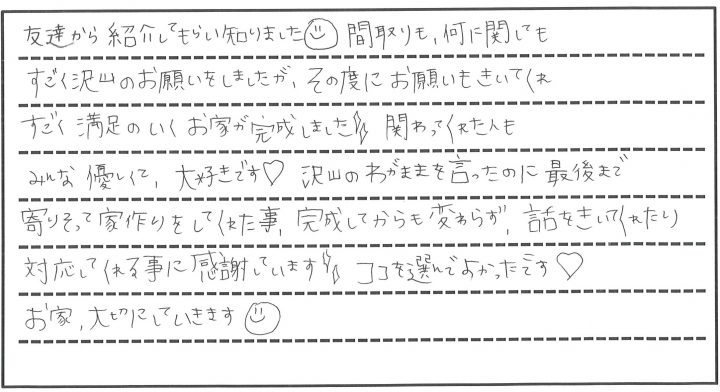 友達から紹介してもらい知りました☺ 間取りも、何に関しても
すごく沢山のお願いをしましたが、その度にお願いもきいてくれ
すごく満足のいくお家が完成しました 関わってくれた人も
みんな優しくて、大好きです♡ 沢山のわがままを言ったのに最後まで
寄りそって家作りをしてくれた事、完成してからも変わらず、話をきいてくれたり
対応してくれる事に感謝しています ココを選んでよかったです♡
お家、大切にしていきます☺